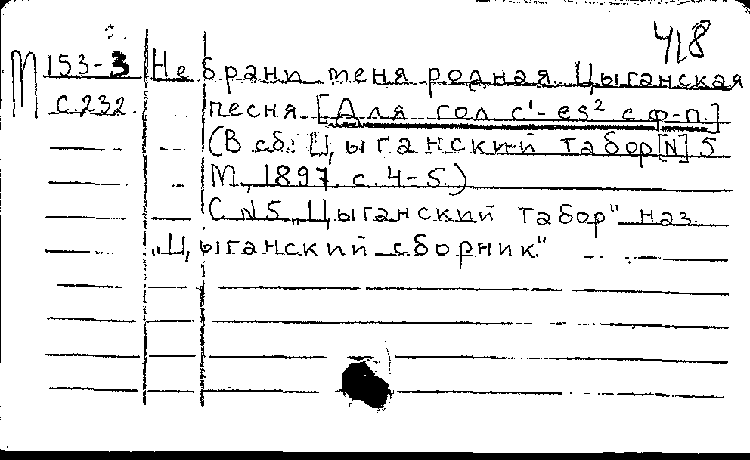 418
М 153-3 Не брани меня родная Цыганская
с.232. песня [Для гол c¹-es² с ф-п.]
(В сб: Цыганский табор[N] 5
М., 1897. с. 4-5)
С N5 „Цыганский табор" наз.
„Цыганский сборник"